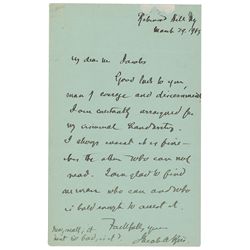 Richmond Hill, Ny
March 29, 1905
My dear Mr Jacobs
Good luck to you,
man of courage and discernment
I am constantly arraigned for
my criminal handwriting.
I always insist it is fine -
but the others who can not
read. I am glad to find
one who can and who
is bold enough to assert it
Faithfully
Jacob A Riis
Now, really, it
isn't so bad, is it?